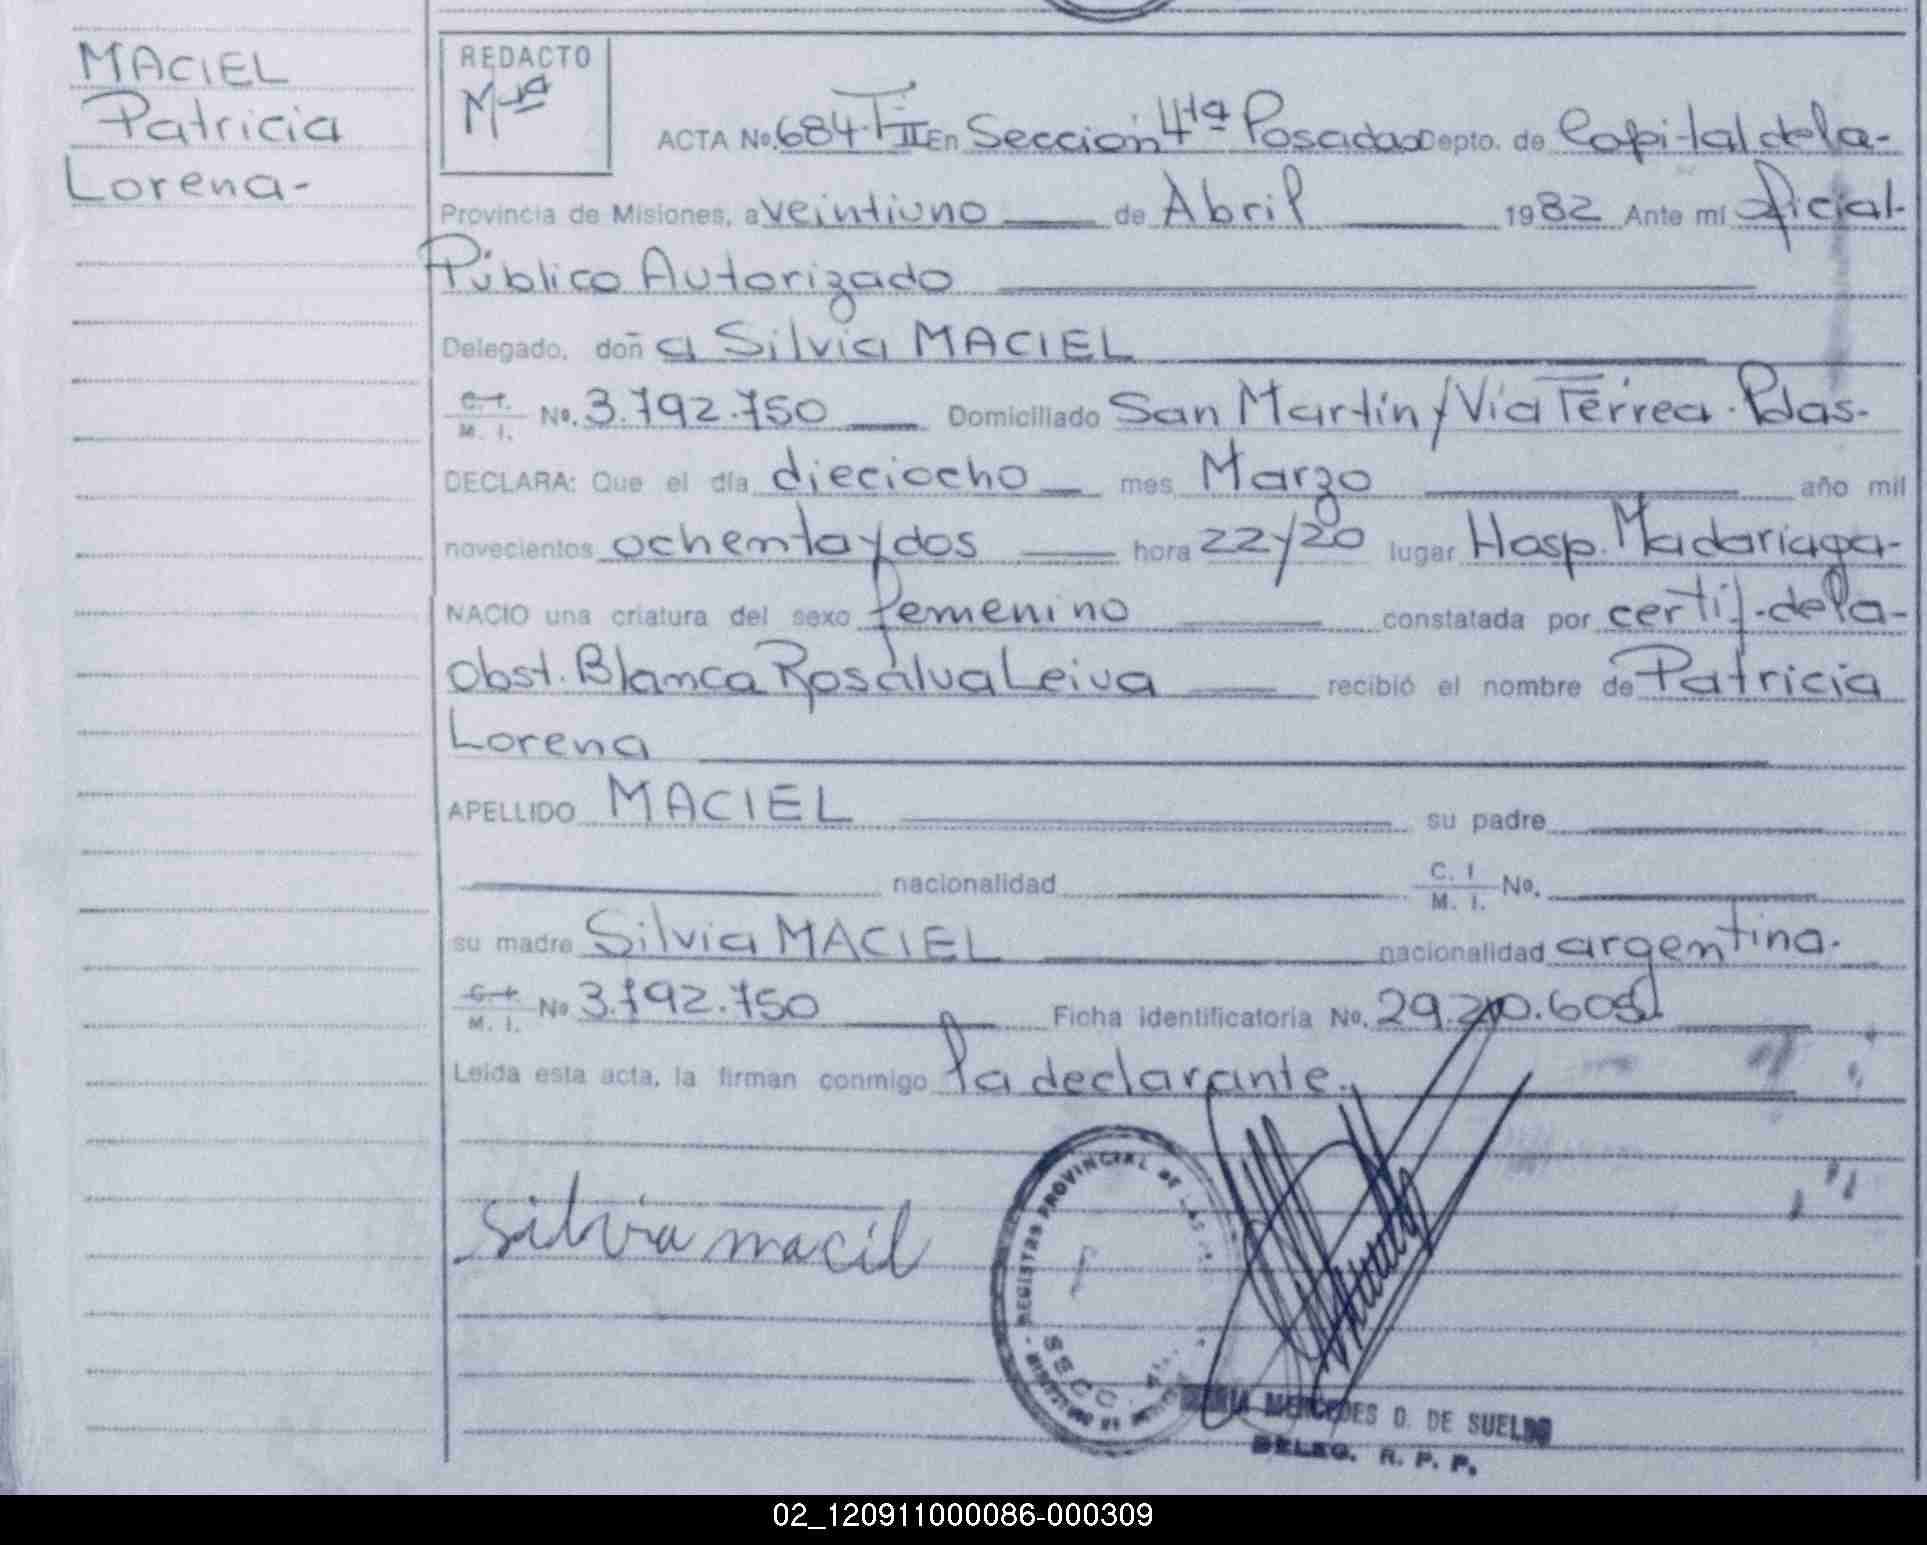 MACIEL
Patricia
Lorena-
REDACTO
Mra
ACTA No. 684. T II En Sección 4ta Posadas Depto. de Capital de la-
Provincia de Misiones, a veintiuno de Abril 1982 Ante mí Oficial-
Público Autorizado
Delegado, doñ a Silvia MACIEL
C. I. M. I. No. 3.792.750 Domiciliado San Martín y Vía Férrea. Pdas-
DECLARA: Que el día dieciocho mes Marzo año mil
novecientos ochenta y dos hora 22 y 20 lugar Hosp. Madariaga-
NACIO una criatura del sexo femenino constatada por certif. de la-
obst. Blanca Rosalva Leiva recibió el nombre de Patricia
Lorena
APELLIDO MACIEL su padre
nacionalidad C. I M. I. No.
su madre Silvia MACIEL nacionalidad argentina.
C. I. M. I. No 3.792.750 Ficha identificatoria No. 29.210.605
Leida esta acta, la firman conmigo la declarante.
silvia macil
REGISTRO PROVINCIAL DE LAS
SECC.
MARIA MERCEDES D. DE SUELDO
DELEG. R. P. P.
02_120911000086-000309